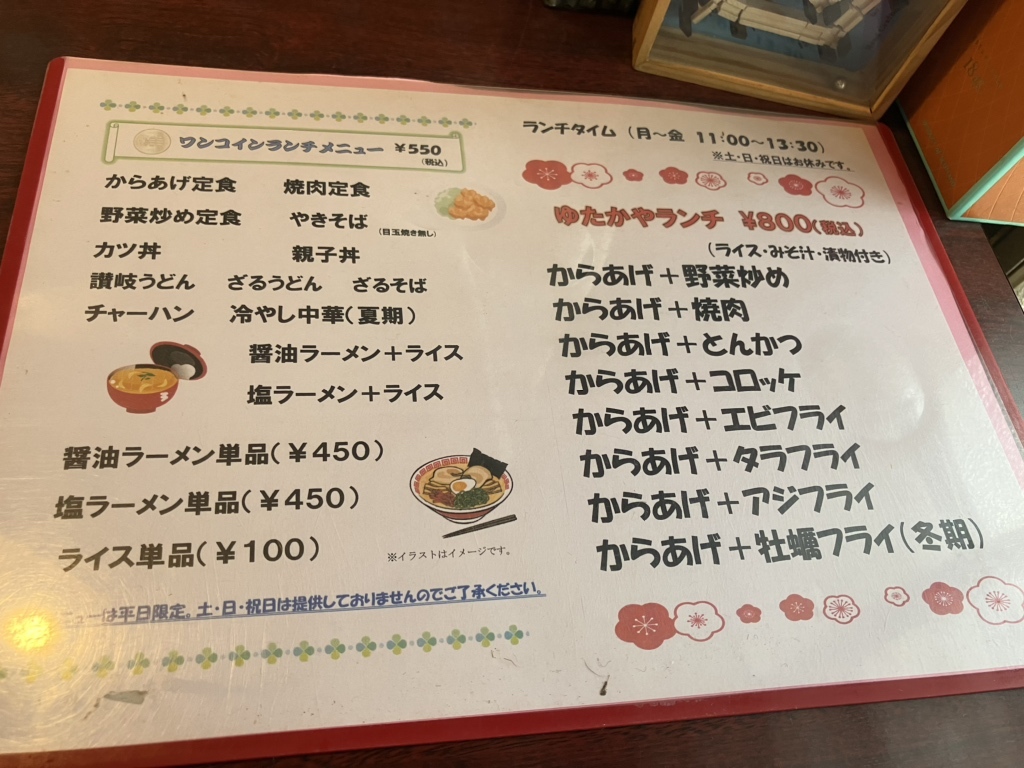 ワンコインランチメニュー ¥550
(税込)
からあげ定食 焼肉定食
野菜炒め定食 やきそば
(目玉焼き無し)
カツ丼 親子丼
讃岐うどん ざるうどん ざるそば
チャーハン 冷やし中華(夏期)
醤油ラーメン+ライス
塩ラーメン+ライス
醤油ラーメン単品(¥450)
塩ラーメン単品(¥450)
ライス単品(¥100)
※イラストはイメージです。
ニューは平日限定。土・日・祝日は提供しておりませんのでご了承ください。
ランチタイム (月~金 11:00~13:30)
※土・日・祝日はお休みです。
ゆたかやランチ ¥800(税込)
(ライス・みそ汁・漬物付き)
からあげ+野菜炒め
からあげ+焼肉
からあげ+とんかつ
からあげ+コロッケ
からあげ+エビフライ
からあげ+タラフライ
からあげ+アジフライ
からあげ+牡蠣フライ(冬期)